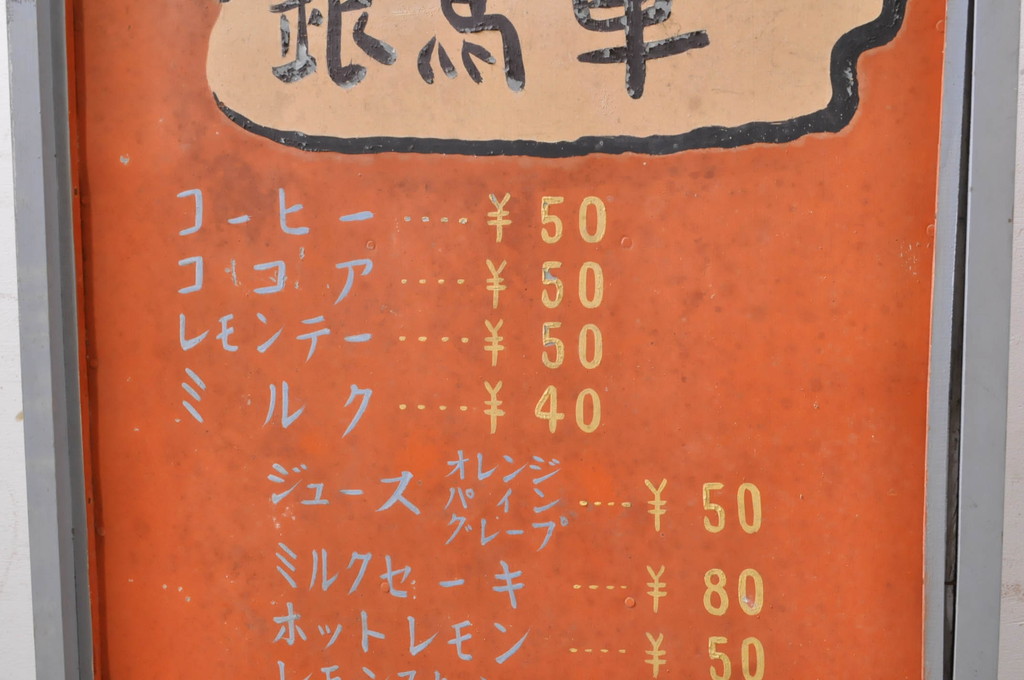 銀馬車
コーヒー ････ ¥ 50
ココア ････ ¥ 50
レモンテー ････ ¥ 50
ミルク ････ ¥ 40
ジュース オレンジ パイン グレープ ････ ¥ 50
ミルクセーキ ････ ¥ 80
ホットレモン ････ ¥ 50